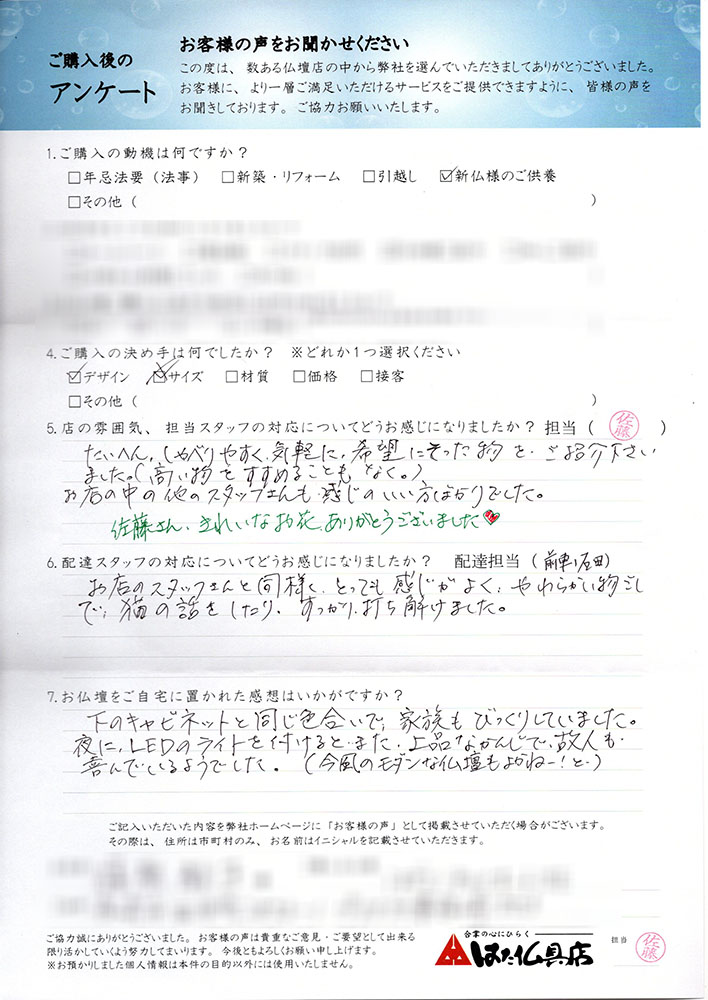 ご購入後の
アンケート
お客様の声をお聞かせください
この度は、数ある仏壇店の中から弊社を選んでいただきましてありがとうございました。
お客様に、より一層ご満足いただけるサービスをご提供できますように、皆様の声を
お聞きしております。ご協力お願いいたします。
1.ご購入の動機は何ですか？
□年忌法要（法事） □新築・リフォーム □引越し ☑新仏様のご供養
□その他（ ）
4.ご購入の決め手は何でしたか？ ※どれか1つ選択ください
☑デザイン ☑サイズ □材質 □価格 □接客
□その他（ ）
5.店の雰囲気、担当スタッフの対応についてどうお感じになりましたか？ 担当（ 佐藤 ）
たいへん、しゃべりやすく、気軽に、希望にそった物を、ご紹介下さい
ました。（高い物をすすめることもなく。）
お店の中の他のスタッフさんも、感じのいい方ばかりでした。
佐藤さん、きれいなお花、ありがとうございました
6.配達スタッフの対応についてどうお感じになりましたか？ 配達担当（ 石田）
お店のスタッフさんと同様に、とっても感じがよく、やわらかい物ごし
で、猫の話をしたり、すっかり打ち解けました。
7.お仏壇をご自宅に置かれた感想はいかがですか？
下のキャビネットと同じ色合いで、家族もびっくりしていました。
夜に、LEDのライトを付けると、また、上品なかんじで、故人も
喜んでいるようでした。（今風のモダンな仏壇もよかねー！と）
ご記入いただいた内容を弊社ホームページに「お客様の声」として掲載させていただく場合がございます。
その際は、住所は市町村のみ、お名前はイニシャルを記載させていただきます。
ご協力誠にありがとうございました。お客様の声は貴重なご意見・ご要望として出来る
限り活かしていくよう努力してまいります。今後ともよろしくお願い申し上げます。
※お預かりしました個人情報は本件の目的以外には使用いたしません。
合掌の心にひらく
はた仏具店
担当 佐藤